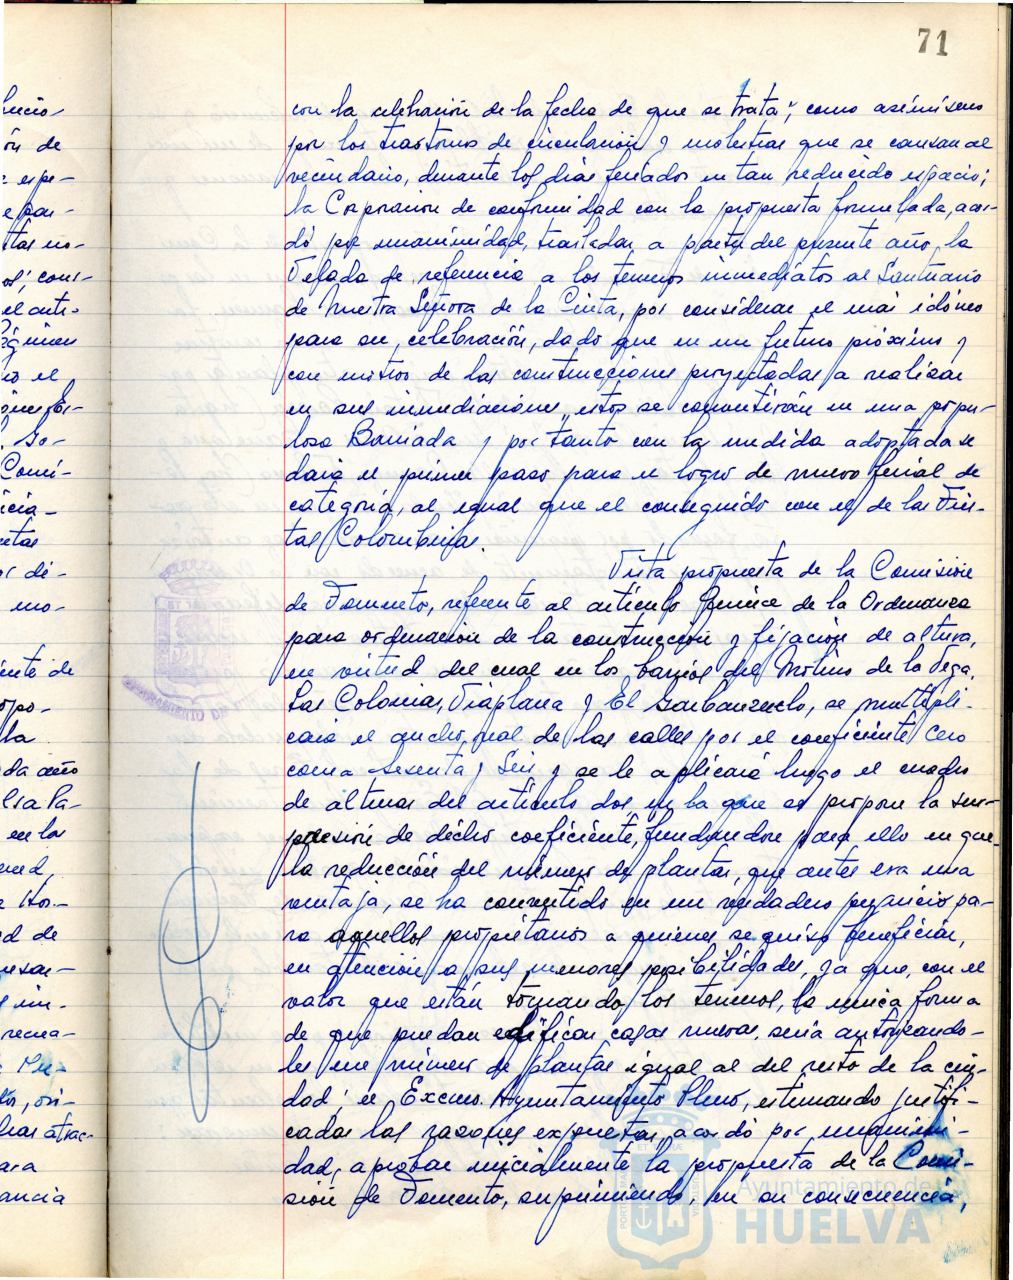 71
con la celebración de la fecha de que se trata; como asimismo
por los trastornos de circulación y molestias que se causan al
vecindario, durante los días feriados en tan reducido espacio;
la Corporación de conformidad con la propuesta formulada, acor-
dó por unanimidad, trasladar a partir del presente año, la
Velada de referencia a los terrenos inmediatos al Santuario
de Nuestra Señora de la Cinta, por considerar el más idóneo
para su celebración, dado que en un futuro próximo y
con motivo de las construcciones proyectadas a realizar
en sus inmediaciones, estos se convertirán en una popu-
losa Barriada y por tanto con la medida adoptada se
daría el primer paso para el logro de nuevo ferial de
categoría, al igual que el conseguido con el de las Fies-
tas Colombinas.
Vista propuesta de la Comisión
de Fomento, referente al artículo quince de la Ordenanza
para ordenación de la construcción y fijación de altura,
en virtud del cual en los barrios del Molino de la Vega,
Las Colonias, Viaplana y El Garbanzuelo, se multipli-
caría el ancho real de las calles por el coeficiente cero
coma sesenta y seis y se le aplicará luego el cuadro
de alturas del artículo dos, en la que se propone la su-
presión de dicho coeficiente, fundándose para ello en que
la reducción del número de plantas, que antes era una
ventaja, se ha convertido en un verdadero perjuicio pa-
ra aquellos propietarios a quienes se quiso beneficiar,
en atención a sus menores posibilidades, ya que, con el
valor que están tomando los terrenos, la única forma
de que puedan edificar casas nuevas, sería autorizando-
les un número de plantas igual al del resto de la ciu-
dad; el Excmo. Ayuntamiento Pleno, estimando justifi-
cadas las razones expuestas, acordó por unanimi-
dad, aprobar inicialmente la propuesta de la Comi-
sión de Fomento, suprimiendo, en su consecuencia,
Ayuntamiento de
HUELVA